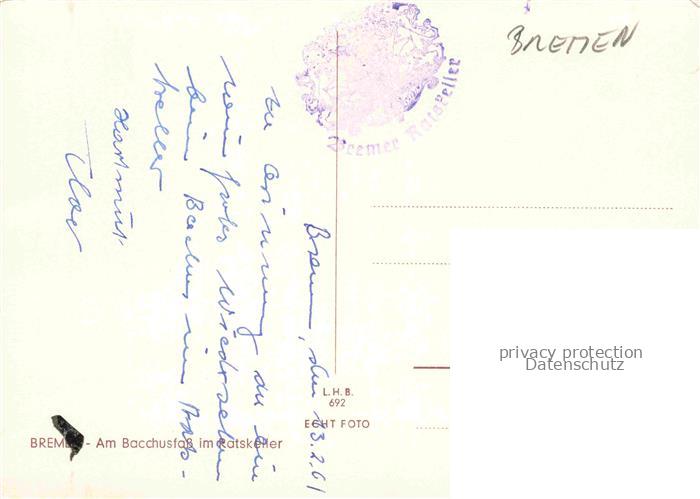 BREMEN
Bremer Ratskeller
Bremen, den 13.2.61
Zur Erinnerung an ein
frohes Wiedersehen
beim Bacchus im Rats-
keller
Hartmut
L.H.B.
692
ECHT FOTO
BREMEN - Am Bacchusfaß im Ratskeller
privacy protection
Datenschutz